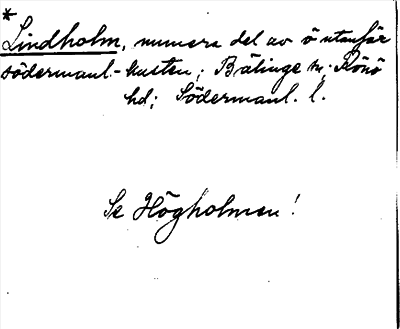 *
Lindholm, numera del av ö utanför
södermanl.-kusten; Bälinge sn; Rönö
hd; Södermanl. l.
Se Högholmen!